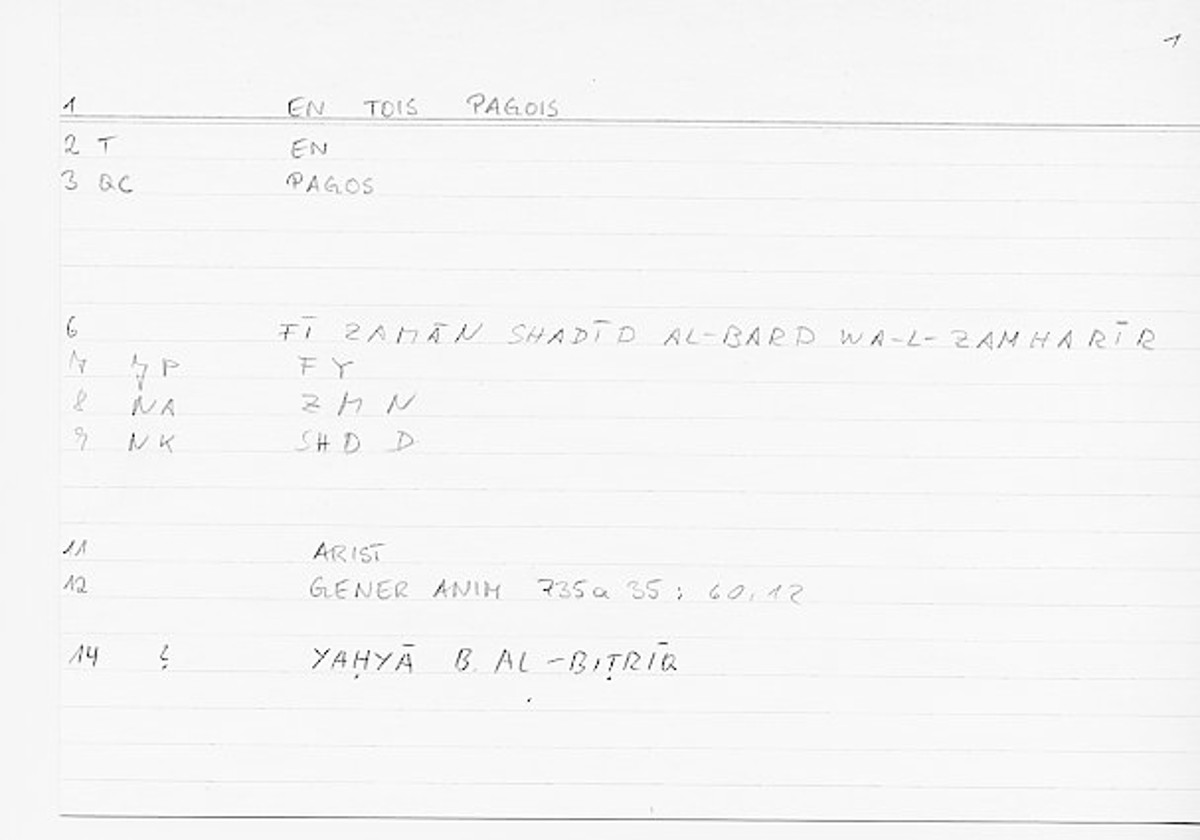 1
1 EN TOIS PAGOIS
2 T EN
3 QC PAGOS
6 FĪ ZAMĀN SHADĪD AL-BARD WA-L-ZAMHARĪR
7 JP FY
8 NA Z M N
9 NK SH D D
11 ARIST
12 GENER ANIM 735a 35 ; 60.12
14 YAḤYĀ B. AL-BIṬRĪQ